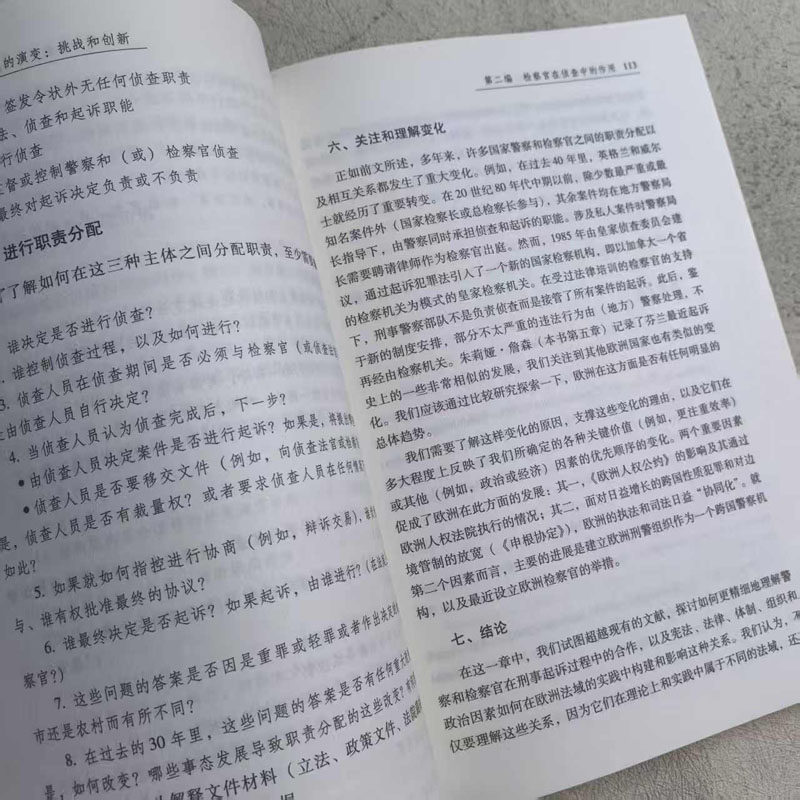 的演变：挑战和创新
签发令状外无任何侦查职责
法、侦查和起诉职能
行侦查
监督或控制警察和（或）检察官侦查
最终对起诉决定负责或不负责
进行职责分配
了了解如何在这三种主体之间分配职责，至少需
谁决定是否进行侦查？
谁控制侦查过程，以及如何进行？
3. 侦查人员在侦查期间是否必须与检察官（或侦查法
由侦查人员自行决定？
4. 当侦查人员认为侦查完成后，下一步？
●由侦查人员决定案件是否进行起诉？如果是，将提出
●侦查人员是否要移交文件（例如，向侦查法官或检
是，侦查人员是否有裁量权？或者要求侦查人员在任何情
如此？
5. 如果就如何指控进行协商（例如，辩诉交易），
与、谁有权批准最终的协议？
6. 谁最终决定是否起诉？如果起诉，由谁进行？（在
察官？）
7. 这些问题的答案是否因是重罪或轻罪或者作出决定
市还是农村而有所不同？
8. 在过去的30年里，这些问题的答案是否有任何重大
是，如何改变？哪些事态发展导致职责分配的这些改变？
解释文件材料（立法、政策文件、法院
第二编 检察官在侦查中的作用 113
六、关注和理解变化
正如前文所述，多年来，许多国家警察和检察官之间的职责分配以
及相互关系都发生了重大变化。例如，在过去40年里，英格兰和威尔
士就经历了重要转变。在20世纪80年代中期以前，除少数最严重或最
知名案件外（国家检察长或总检察长参与），其余案件均在地方警察局
长指导下，由警察同时承担侦查和起诉的职能。涉及私人案件时警察局
长需要聘请律师作为检察官出庭。然而，1985年由皇家侦查委员会建
议，通过起诉犯罪法引入了一个新的国家检察机构，即以加拿大一个省
的检察机关为模式的皇家检察机关。在受过法律培训的检察官的支持
下，刑事警察部队不是负责侦查而是接管了所有案件的起诉。此后，鉴
于新的制度安排，部分不太严重的违法行为由（地方）警察处理，不
再经由检察机关。朱莉娅·詹森（本书第五章）记录了芬兰最近起诉
史上的一些非常相似的发展，我们关注到其他欧洲国家也有类似的变
化。我们应该通过比较研究探索一下，欧洲在这方面是否有任何明显的
总体趋势。
我们需要了解这样变化的原因，支撑这些变化的理由，以及它们在
多大程度上反映了我们所确定的各种关键价值（例如，更注重效率）
或其他（例如，政治或经济）因素的优先顺序的变化。两个重要因素
促成了欧洲在此方面的发展：其一，《欧洲人权公约》的影响及其通过
欧洲人权法院执行的情况；其二，面对日益增长的跨国性质犯罪和对边
境管制的放宽（《申根协定》），欧洲的执法和司法日益“协同化”。就
第二个因素而言，主要的进展是建立欧洲刑警组织作为一个跨国警察机
构，以及最近设立欧洲检察官的举措。
七、结论
在这一章中，我们试图超越现有的文献，探讨如何更精细地理解警
察和检察官在刑事起诉过程中的合作，以及宪法、法律、体制、组织和
政治因素如何在欧洲法域的实践中构建和影响这种关系。我们认为，不
仅要理解这些关系，因为它们在理论上和实践中属于不同的法域，还